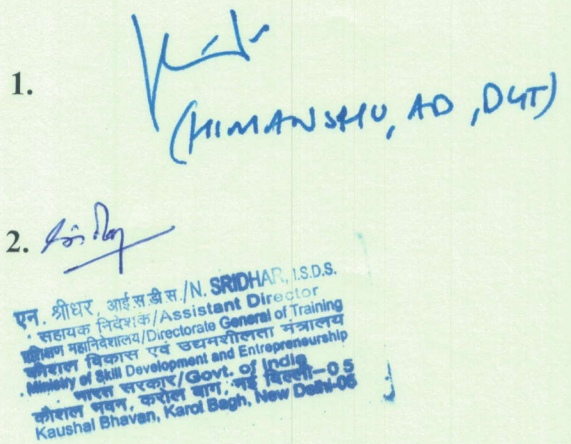 1.
(HIMANSHU, AD, DGT)
2.
एन. श्रीधर, आई.स.डी.स./N. SRIDHAR, I.S.D.S.
सहायक निदेशक/Assistant Director
प्रशिक्षण महानिदेशालय/Directorate General of Training
कौशल विकास एवं उद्यमशीलता मंत्रालय
Ministry of Skill Development and Entrepreneurship
भारत सरकार/Govt. of India
कौशल भवन, करोल बाग, नई दिल्ली-05
Kaushal Bhavan, Karol Bagh, New Delhi-05